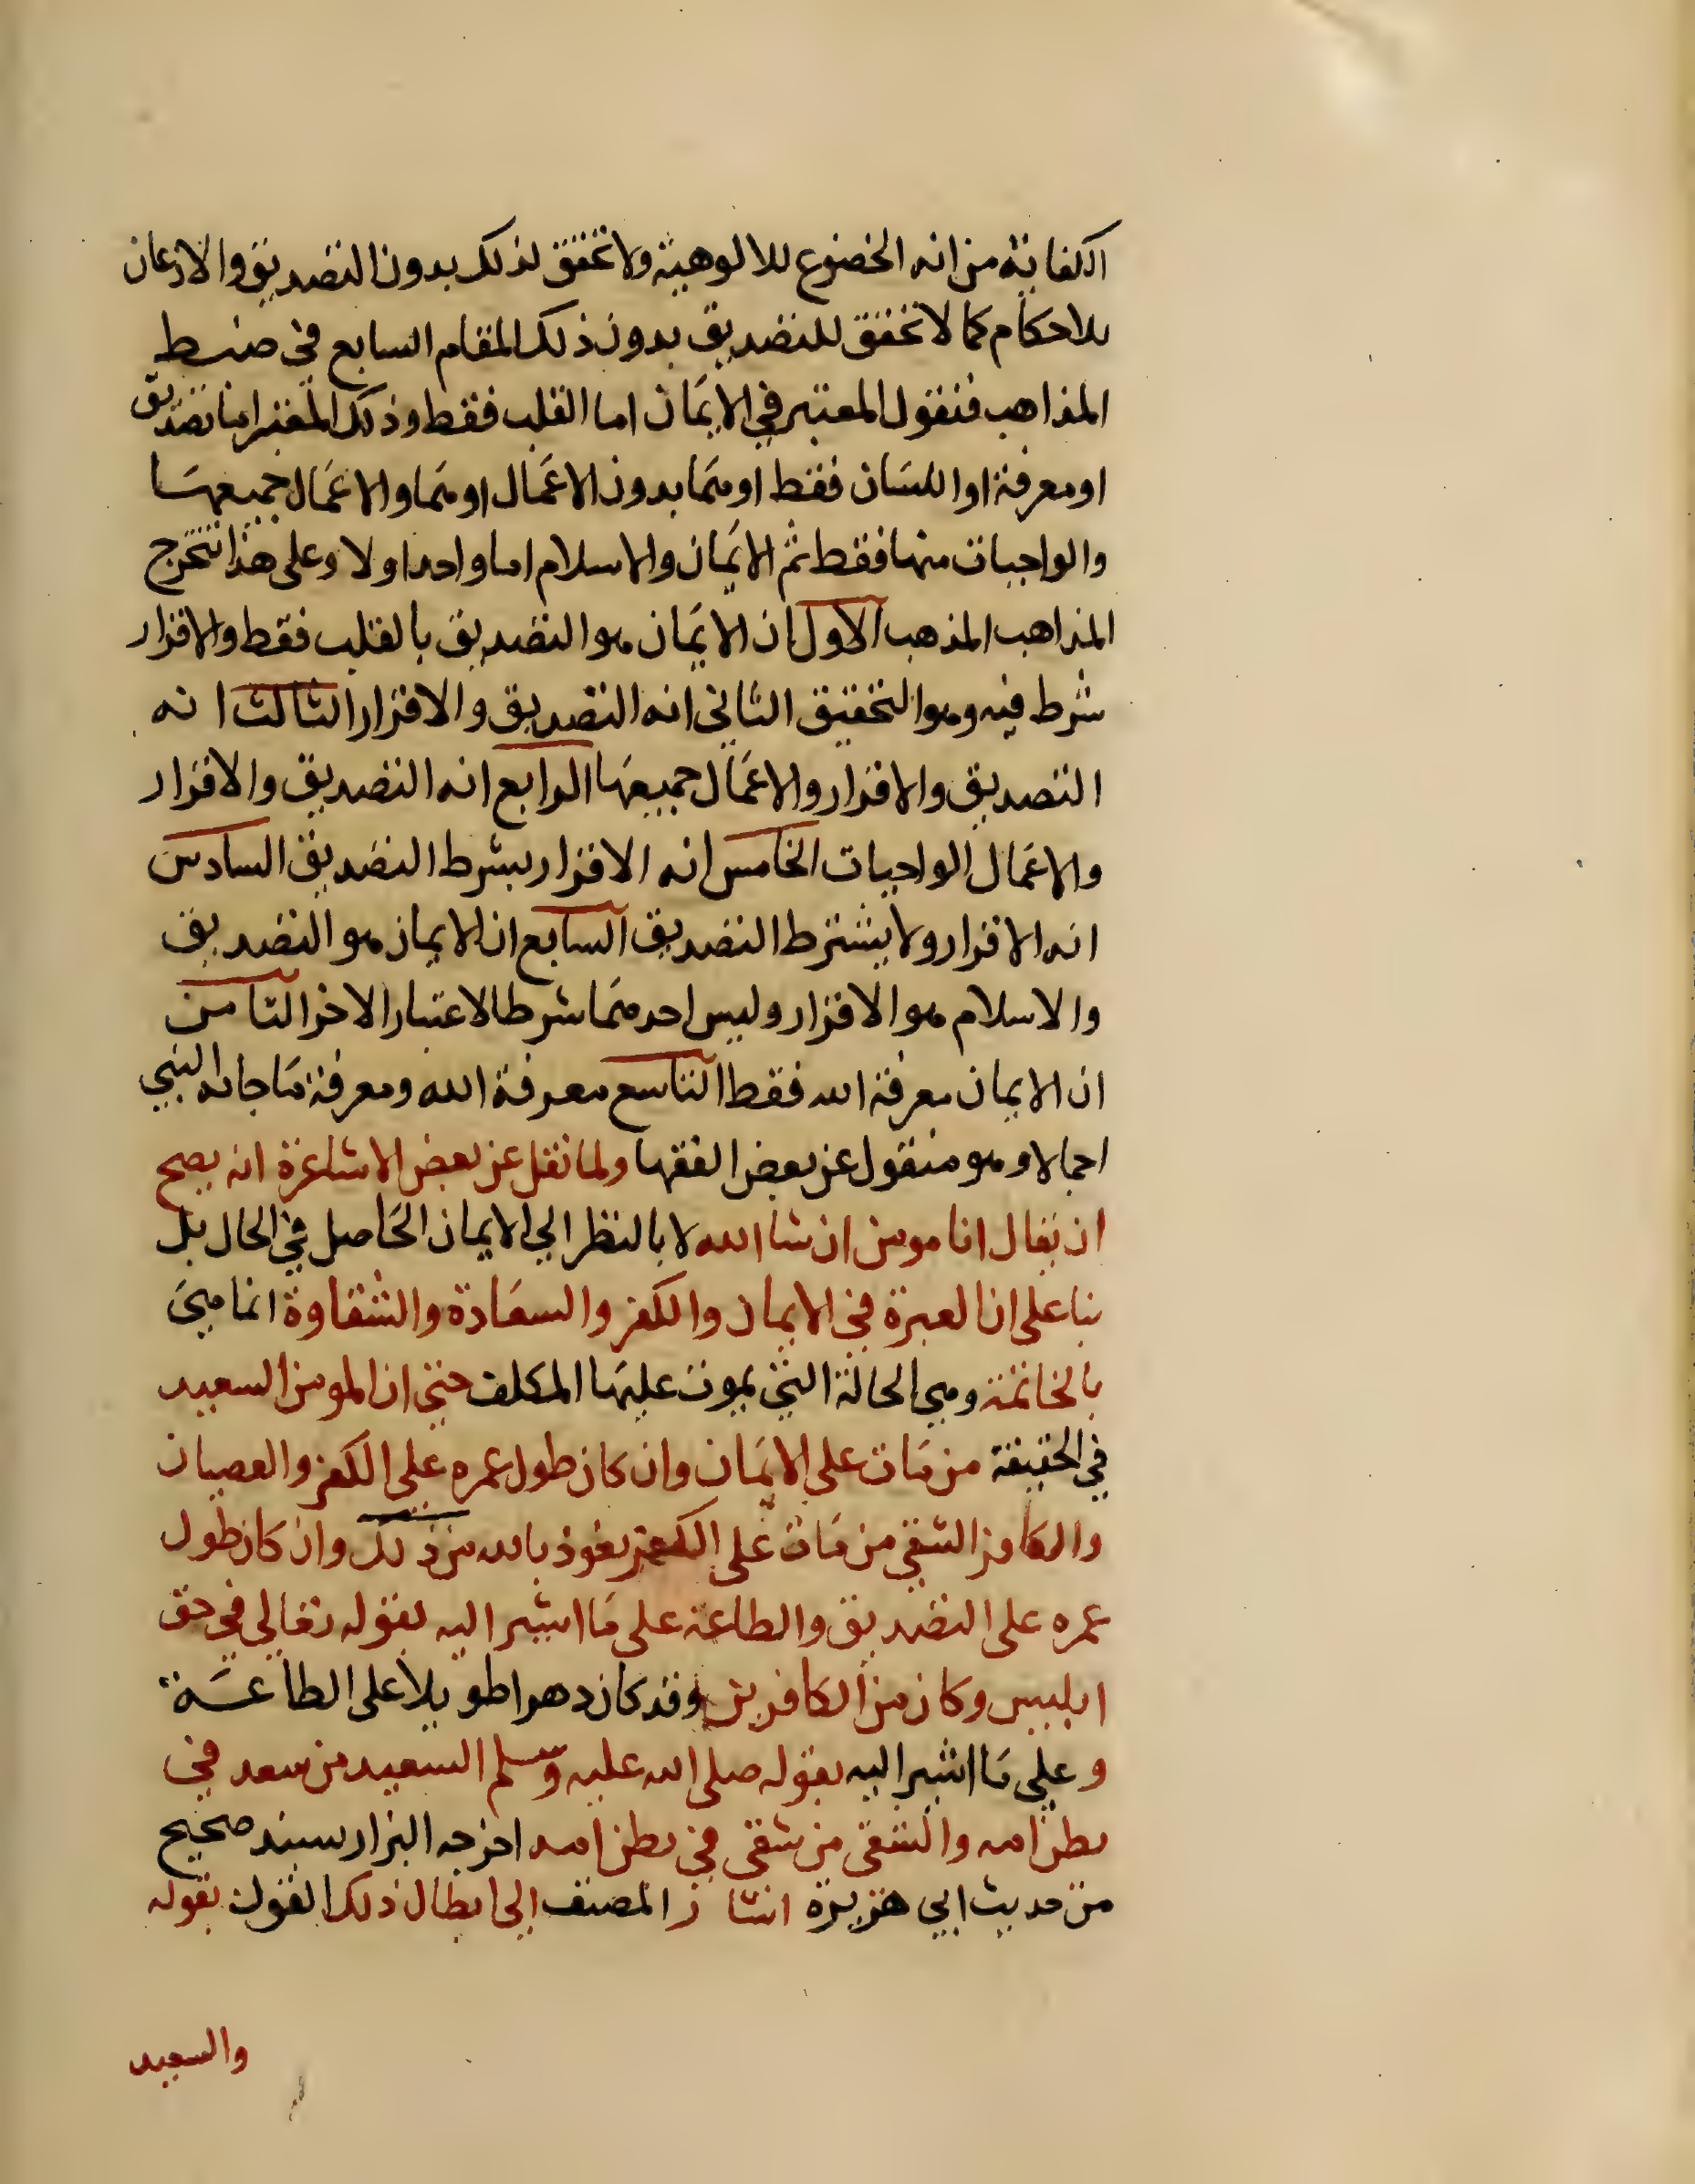 الكفاية من انه الخضوع للالوهية ولا تحقق لذلك بدون التصديق والاذعان
بلاحكام كما لا تحقق للتصديق بدون ذلك المقام السابع في ضبط
المذاهب فنقول المعتبر في الايمان اما القلب فقط وذلك المعتبر اما تصديق
او معرفة او اللسان فقط او هما بدون الاعمال او هما والاعمال جميعها
والواجبات منها فقط ثم الايمان والاسلام اما واحد او لا وعلى هذا تتخرج
المذاهب المذهب الاول ان الايمان هو التصديق بالقلب فقط والاقرار
شرط فيه وهو التحقيق الثاني انه التصديق والاقرار الثالث انه
التصديق والاقرار والاعمال جميعها الرابع انه التصديق والاقرار
والاعمال الواجبات الخامس انه الاقرار بشرط التصديق السادس
انه الاقرار ولا يشترط التصديق السابع ان الايمان هو التصديق
والاسلام هو الاقرار وليس احدهما شرطا لاعتبار الاخر الثامن
ان الايمان معرفة الله فقط التاسع معرفة الله ومعرفة ما جا به النبي
اجمالا وهو منقول عن بعض الفقها ولما نقل عن بعض الاشاعرة انه يصح
ان يقال انا مومن ان شا الله لا بالنظر الي الايمان الحاصل في الحال بل
بنا على ان العبرة في الايمان والكفر والسعادة والشقاوة انما هي
بالخاتمة وهي الحالة التي يموت عليها المكلف حتي ان المومن السعيد
في الحقيقة من مات علي الايمان وان كان طول عمره علي الكفر والعصيان
والكافر الشقي من مات علي الكفر نعوذ بالله من ذلك وان كان طول
عمره على التصديق والطاعة على ما اشير اليه بقوله تعالي في حق
ابليس وكان من الكافرين وقد كان دهرا طويلا على الطاعة
وعلي ما اشير اليه بقوله صلى الله عليه وسلم السعيد من سعد في
بطن امه والشقي من شقي في بطن امه اخرجه البزار بسند صحيح
من حديث ابي هريرة اشار المصنف الي ابطال ذلك القول بقوله
والسعيد